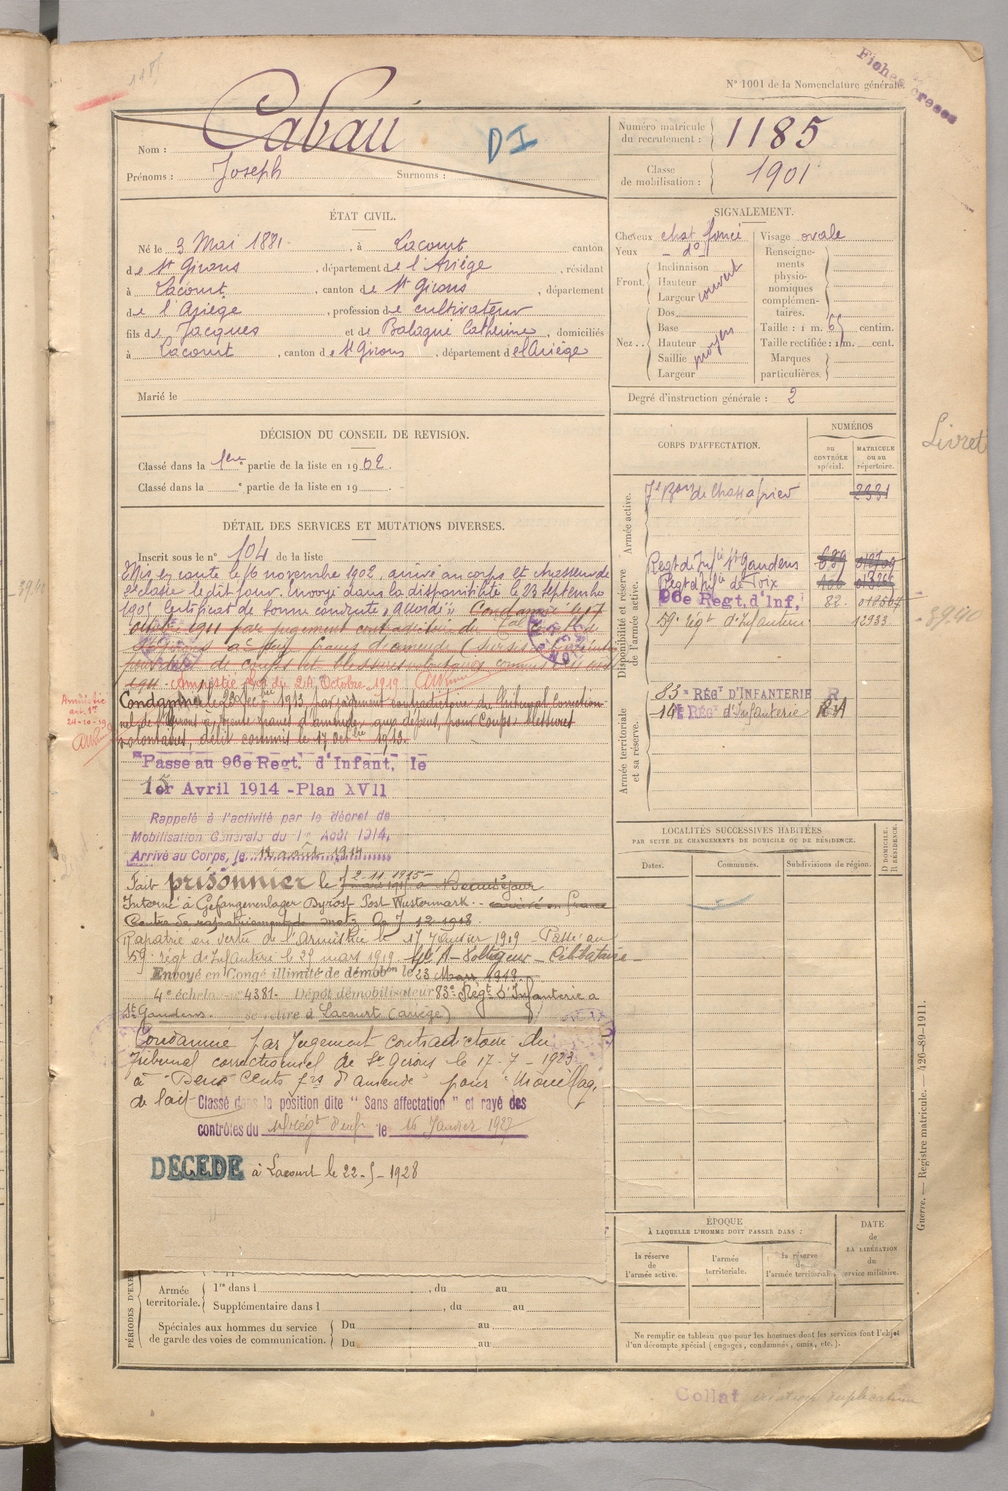 Fiches
N° 1001 de la Nomenclature générale.
Cabau
DI
Nom :
Prénoms : Joseph Surnoms :
Numéro matricule du recrutement : 1185
Classe de mobilisation : 1901
ÉTAT CIVIL.
Né le 3 Mai 1881, à Lacourt canton
de St Girons, département de l'Ariège, résidant
à Lacourt, canton de St Girons, département
de l'Ariège, profession de cultivateur
fils de Jacques et de Balagué Catherine, domiciliés
à Lacourt, canton de St Girons, département de l'Ariège
Marié le
SIGNALEMENT.
Cheveux chat foncé
Yeux - d° -
Front. Inclinaison
Hauteur
Largeur
couvert
Nez .. Dos
Base
Hauteur
Saillie
Largeur
moyen
Visage ovale
Renseignements physionomiques complémentaires.
Taille : 1 m. 65 centim.
Taille rectifiée : 1 m. cent.
Marques particulières.
Degré d'instruction générale : 2
DÉCISION DU CONSEIL DE REVISION.
Classé dans la 1ere partie de la liste en 1902.
Classé dans la e partie de la liste en 19
DÉTAIL DES SERVICES ET MUTATIONS DIVERSES.
Inscrit sous le n° 104 de la liste
Mis en route le 16 novembre 1902, arrivé au corps et chasseur de
2e classe le dit jour. Envoyé dans la disponibilité le 23 septembre
1905 Certificat de bonne conduite "Accordé" Condamné le 17
octobre 1911 par jugement contradictoire du
St Girons à francs d'amende
de coups et blessures volontaires commis
1911 - Amnistié du 24 Octobre 1919
Condamné le 23 1913 par jugement contradictoire du tribunal correction-
nel de St Girons à trente francs d'amende, par défaut, pour coups et blessures
volontaires, délit commis le 17 1913.
Amnistie
art. 1er
24-10-19
Passe au 96e Regt. d'Infant. le
1er Avril 1914 - Plan XVII
Rappelé à l'activité par le décret de
Mobilisation Générale du 1e Août 1914.
Arrivé au Corps, le 12 août 1914
Fait prisonnier le 2-11-1915 à Beauséjour
Interné à Gefangenenlager Dyrotz Post Wustermark - arrivé en France
Centre de rapatriement de Metz le 7 12 1918.
Rapatrié en vertu de l'armistice le 17 Janvier 1919 Passé au
59e régt d'Infanterie le 29 mars 1919 - Voltigeur - Célibataire -
Envoyé en Congé illimité de démobon le 23 Mars 1919
4e échelon n° 4381. Dépôt démobilisateur 83e Régt d'Infanterie à
St Gaudens. se retire à Lacourt (Ariège)
Condamné par Jugement contradictoire du
Tribunal correctionnel de St Girons le 17-7-1923
à Deux Cents frs d'amende pour Mouillage
de lait
Classé dans la position dite " Sans affectation " et rayé des
contrôles du régt d'inf le 16 Janvier 1927
DECEDE à Lacourt le 22-5-1928
CORPS D'AFFECTATION.
NUMÉROS
AU CONTRÔLE spécial.
MATRICULE ou au répertoire.
Armée active.
7e Bon de Chass à pied 2331
Disponibilité et réserve de l'armée active.
Regt d'Infie St Gaudens
Regt d'Infie de Foix
96e Regt. d'Inf, 82.
59e régt d'Infanterie 12933
Armée territoriale et sa réserve.
83e RÉGT D'INFANTERIE R
14e RÉGT d'Infanterie
Livret
LOCALITÉS SUCCESSIVES HABITÉES
PAR SUITE DE CHANGEMENTS DE DOMICILE OU DE RÉSIDENCE.
Dates.
Communes.
Subdivisions de région.
D DOMICILE.
R RÉSIDENCE.
ÉPOQUE
À LAQUELLE L'HOMME DOIT PASSER DANS :
la réserve de l'armée active.
l'armée territoriale.
la réserve de l'armée territoriale.
DATE de LA LIBÉRATION du service militaire.
Ne remplir ce tableau que pour les hommes dont les services font l'objet
d'un décompte spécial (engagés, condamnés, omis, etc.).
PÉRIODES D'EXE
Armée territoriale. 1re dans l , du au
Supplémentaire dans l , du au
Spéciales aux hommes du service de garde des voies de communication. Du au
Du au
Guerre. — Registre matricule. — 426-89-1911.
Collat